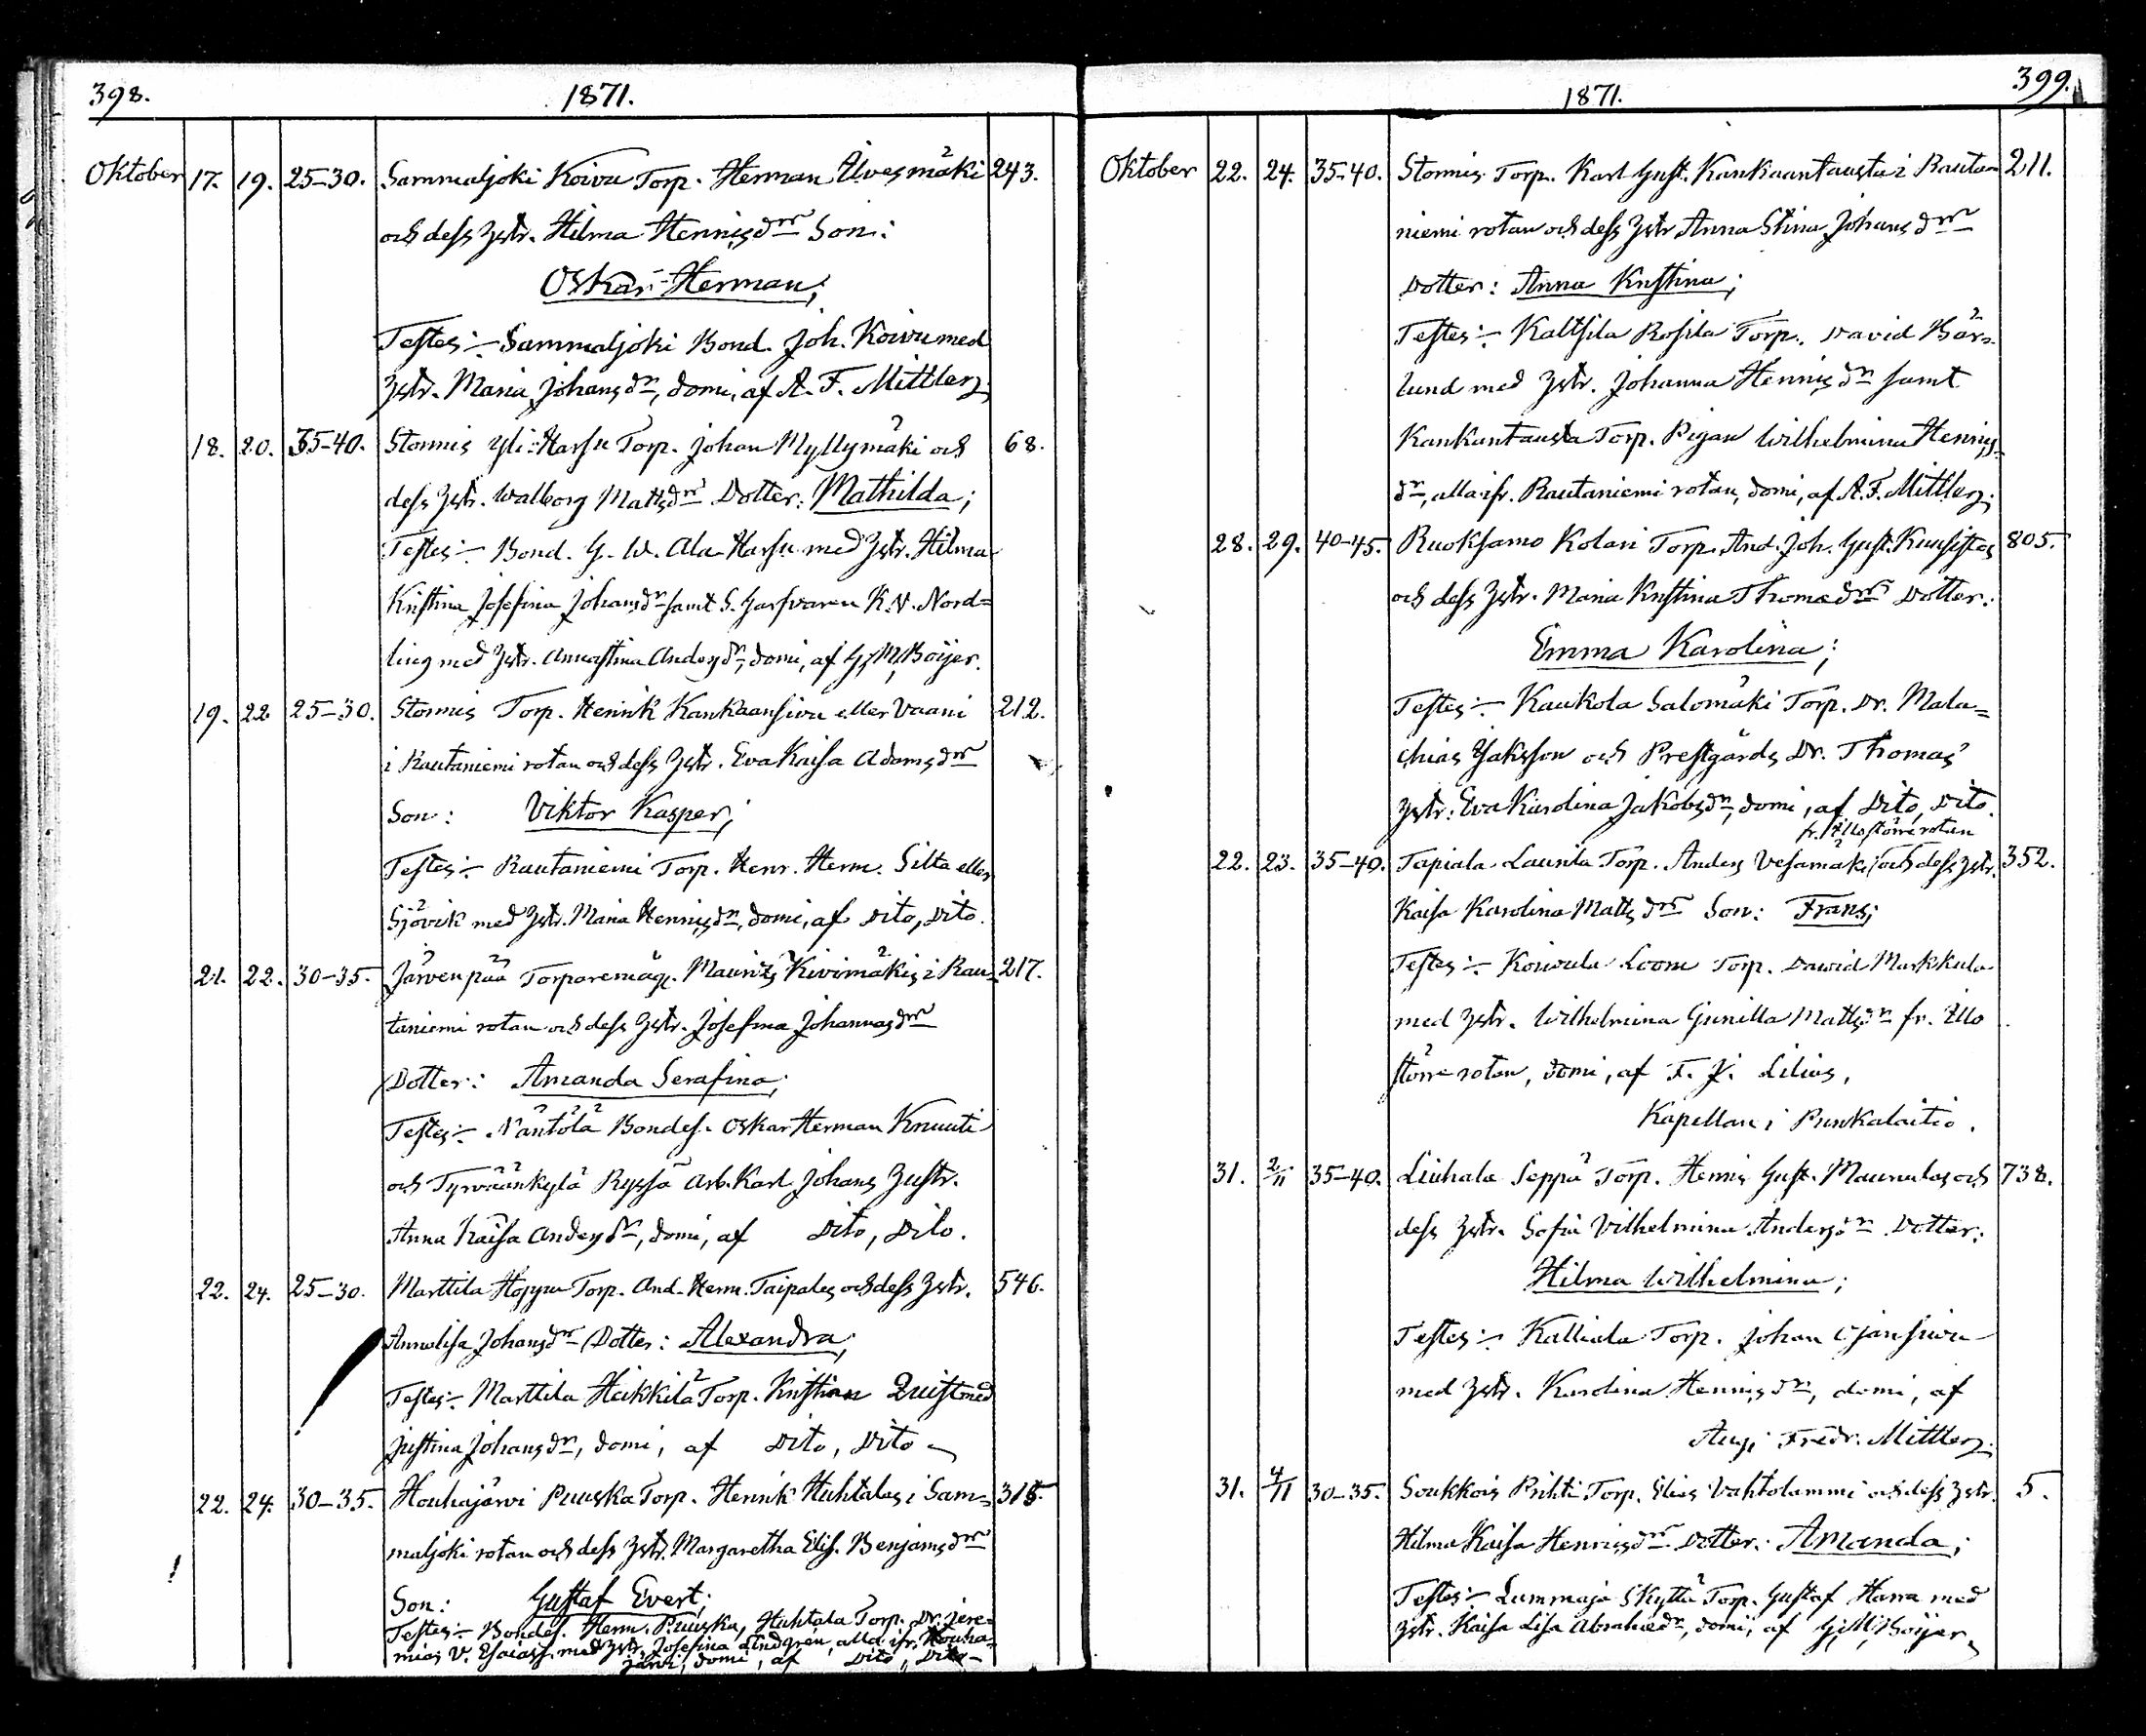 398.
1871.
Oktober 17. 19. 25-30. Sammaljoki Koivu Torp. Herman Älvesmäki 243.
och dess hstr. Hilma Henrisdr Son:
Oskar Herman;
Testes:- Sammaljoki Bond. Joh. Koivu med
hstr. Maria Johansdr, domi, af A. F. Mittler;
18. 20. 35-40. Stormis Yli-Harsu Torp. Johan Myllymäki och 68.
dess hstr. Walborg Mattsdr Dotter: Mathilda;
Testes:- Bond. G. W. Ala-Harsu med hstr. Hilma
Kristina Josefina Johansdr samt S. Garfvaren K. N. Nord=
ling med hstr. Annastina Andersdr, domi, af G. M. Boijer.
19. 22. 25-30. Stormis Torp. Henrik Kankaansivu eller Vaani 212.
i Rautaniemi rotan och dess hstr. Eva Kaisa Adamsdr
Son: Viktor Kasper;
Testes:- Rautaniemi Torp. Henr. Herm. Silta eller
Sjövik med hstr. Maria Henrisdr, domi, af Dito, Dito.
21. 22. 30-35. Järvenpää Torparemåg. Maurits Kivimäkis i Rau- 217.
taniemi rotan och dess hstr. Josefina Johannasdr
Dotter: Amanda Serafina;
Testes:- Näntölä Bondes. Oskar Herman Knuuti
och Tyrväänkylä Ryssä Arb. Karl Johans hustr.
Anna Kaisa Andersdr, domi, af Dito, Dito.
22. 24. 25-30. Marttila Hoppu Torp. And. Herm. Taipales och dess hstr. 546.
Annalisa Johansdr Dotter: Alexandra;
Testes:- Marttila Heikkilä Torp. Kristian Quist med
Justina Johansdr, domi, af Dito, Dito
22. 24. 30-35. Houhajärvi Puuska Torp. Henrik Huhtalas i Sam= 315.
maljoki rotan och dess hstr. Margaretha Elis. Benjamsdr
Son: Gustaf Evert;
Testes:- Bondes. Herm. Puuska, Huhtala Torp. Dr. Jere=
mias V. Esaiass. med hstr. Josefina Lindgren, alla ifr. Houha=
järvi, domi, af Dito, Dito
399.
1871.
Oktober 22. 24. 35-40. Stormis Torp. Karl Gust. Kankaantausta i Rauta= 211.
niemi rotan och dess hstr Anna Stina Johansdr
Dotter: Anna Kristina;
Testes:- Kaltsila Rosila Torp. David Bärs=
lund med hstr. Johanna Henrisdr samt
Kankantausta Torp. Pigan Wilhelmina Henris=
dr, alla ifr. Rautaniemi rotan, domi, af A. F. Mittler;
28. 29. 40-45. Ruoksamo Kolari Torp. And. Joh. Gust. Kuusistos 805.
och dess hstr. Maria Kristina Thomædr Dotter:
Emma Karolina;
Testes:- Kaukola Salomäki Torp. Dr. Mala=
chias Isaksson och Prestgårds Dr. Thomas
hstr. Eva Karolina Jakobsdr, domi, af Dito, Dito.
fr. Illo större rotan
22. 23. 35-40. Tapiala Launila Torp. Anders Vesamäki och dess hstr. 352.
Kaisa Karolina Mattsdr Son: Frans;
Testes:- Koivula Loom Torp. David Markkula
med hstr. Wilhelmina Gunilla Mattsdr fr. Illo
större rotan, domi, af F. J. Lilius,
Kapellan i Punkalaitio.
31. 2/11 35-40. Liuhala Seppä Torp. Henris Gust. Maunulas och 738.
dess hstr. Sofia Vilhelmina Andersdr Dotter:
Hilma Wilhelmina;
Testes:- Kalliala Torp. Johan Ojansivu
med hstr. Karolina Henrisdr, domi, af
Aug. Fredr. Mittler;
31. 4/11 30-35. Soukkois Prihti Torp. Elias Vahtolammi och dess hstr. 5.
Hilma Kaisa Henrisdr Dotter: Amanda;
Testes:- Lummaja Skyttä Torp. Gustaf Harra med
hstr. Kaisa Lisa Abrahamsdr, domi, af G. M. Boijer.